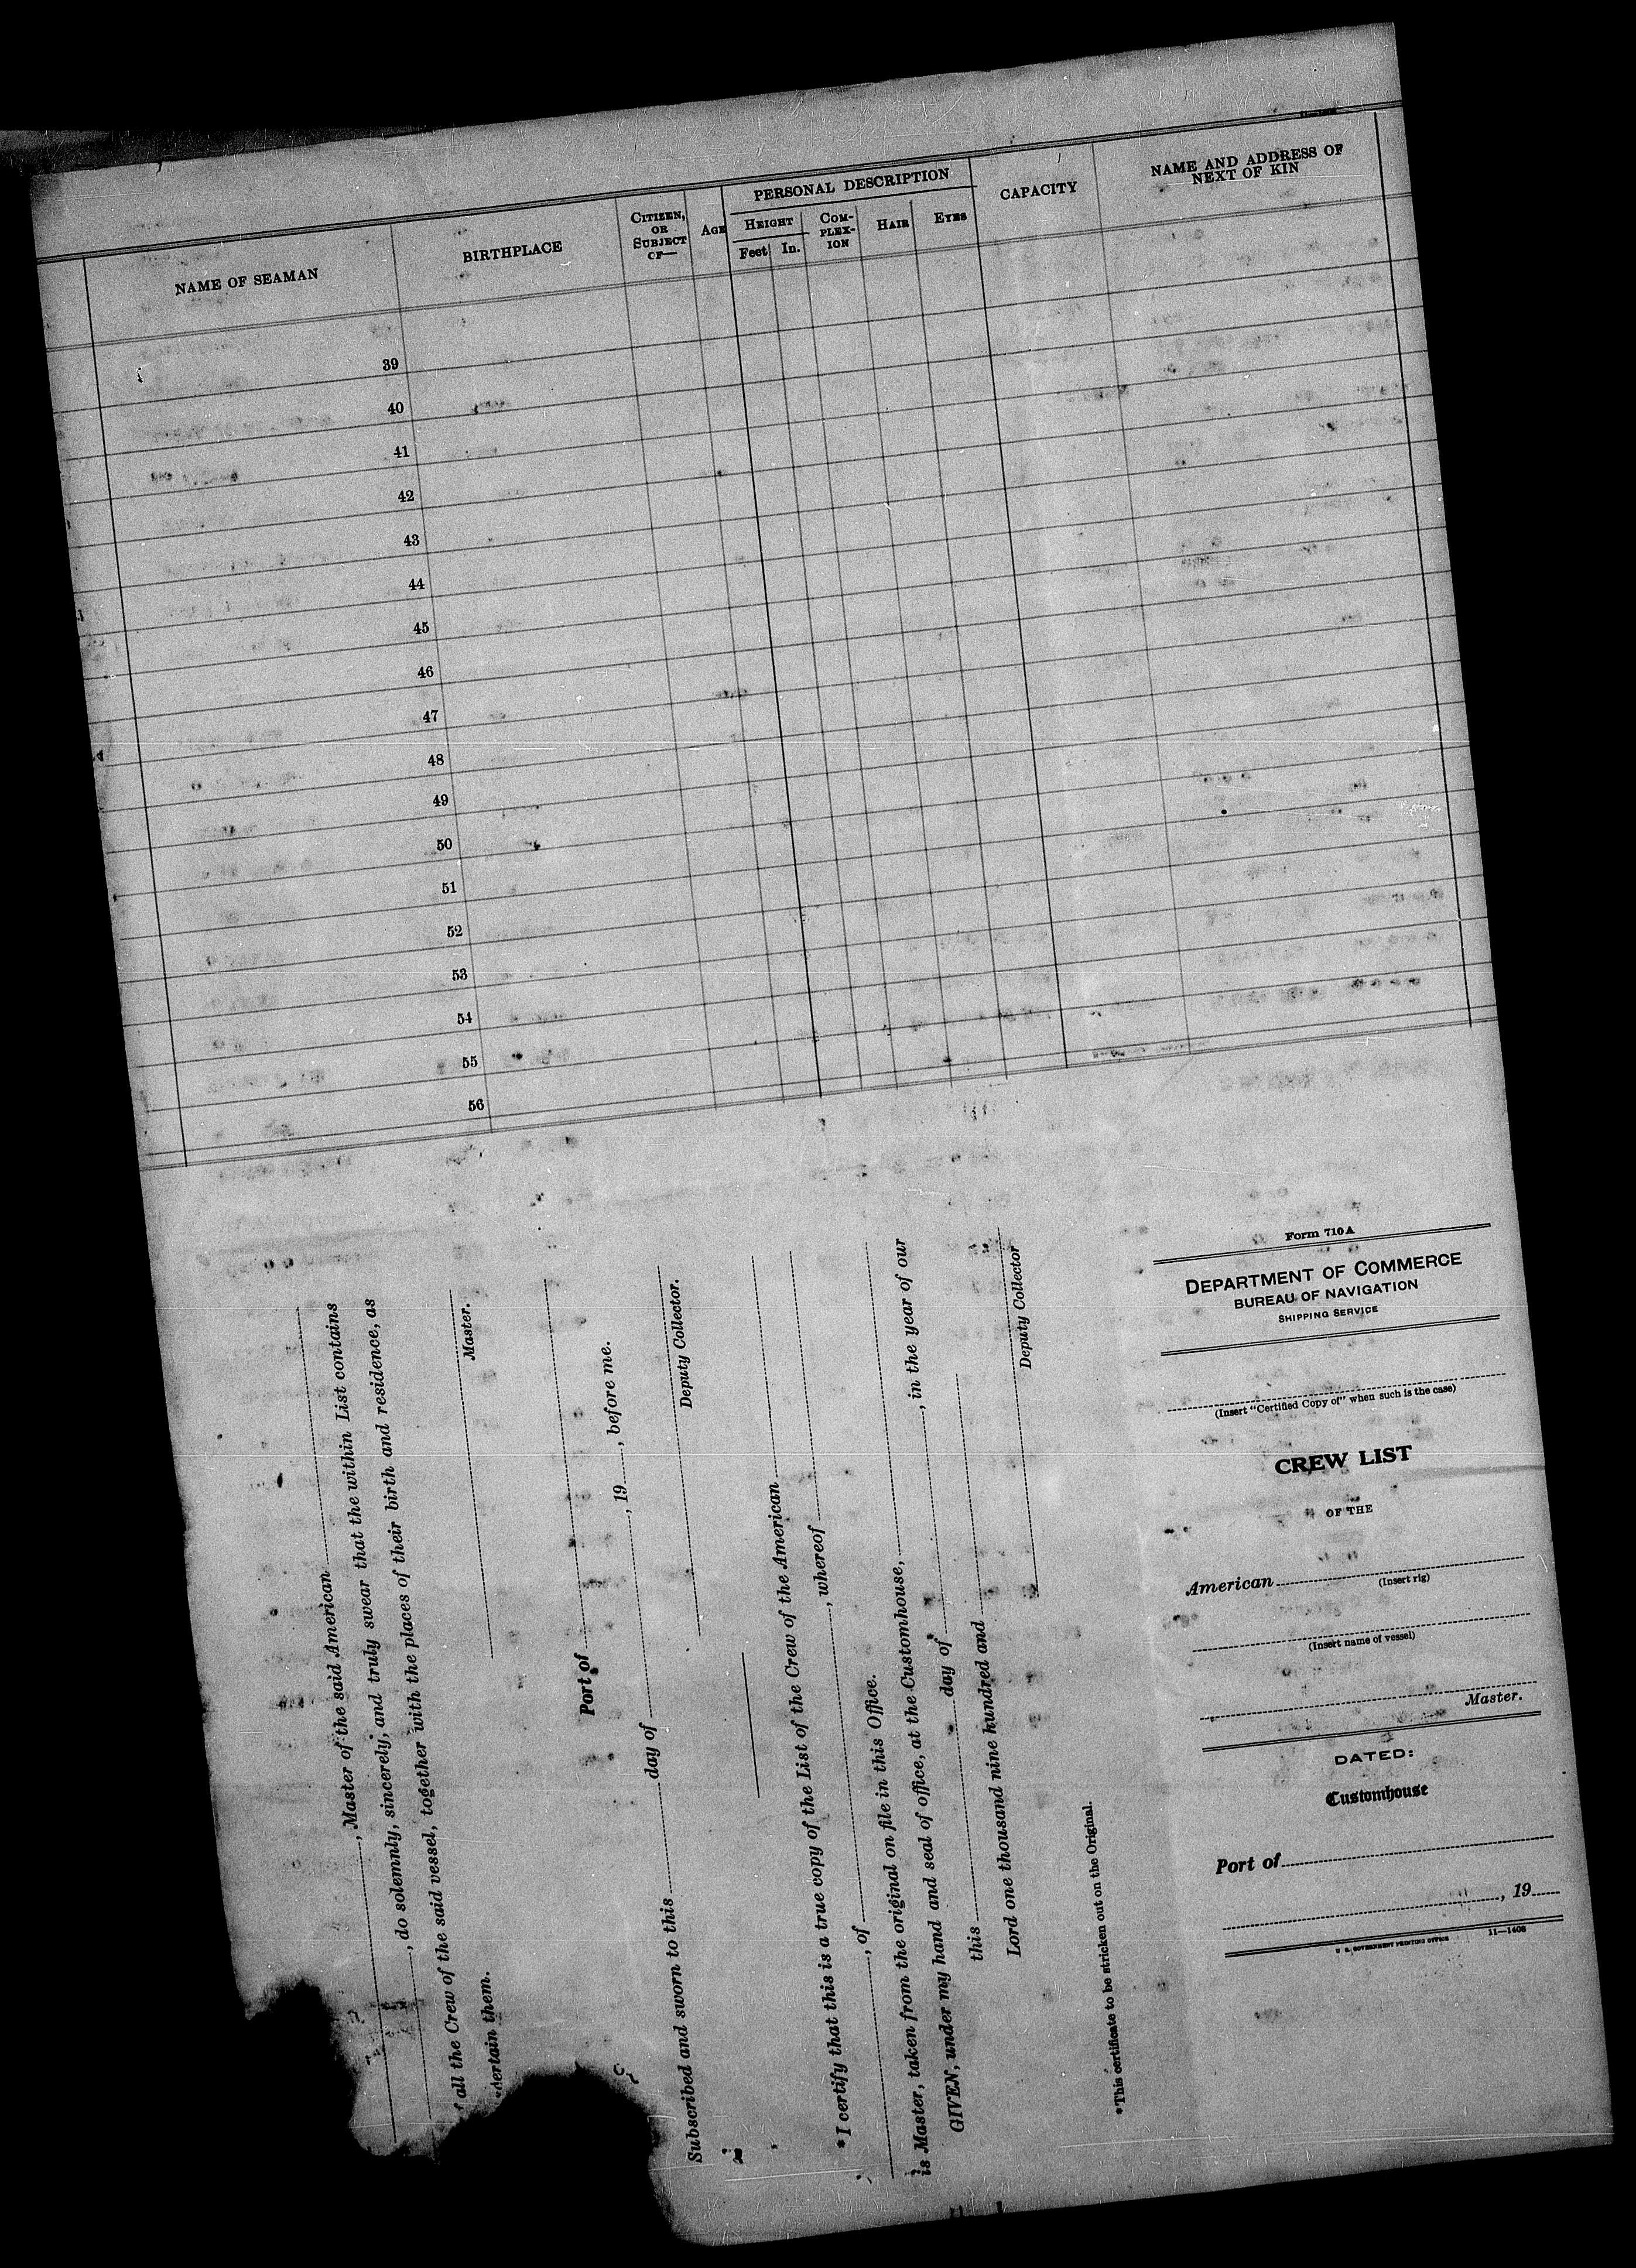 NAME OF SEAMAN
BIRTHPLACE
CITIZEN,
OR
SUBJECT
OF—
AGE
PERSONAL DESCRIPTION
HEIGHT
Feet
In.
COM-
PLEX-
ION
HAIR
EYES
CAPACITY
NAME AND ADDRESS OF
NEXT OF KIN
39
40
41
42
43
44
45
46
47
48
49
50
51
52
53
54
55
56
, Master of the said American
, do solemnly, sincerely, and truly swear that the within List contains
all the Crew of the said vessel, together with the places of their birth and residence, as
them.
Master.
Port of
Subscribed and sworn to this day of , 19 , before me.
Deputy Collector.
*I certify that this is a true copy of the List of the Crew of the American
, of , whereof
is Master, taken from the original on file in this Office.
GIVEN, under my hand and seal of office, at the Customhouse,
this day of , in the year of our
Lord one thousand nine hundred and
Deputy Collector
*This certificate to be stricken out on the Original.
Form 710A
DEPARTMENT OF COMMERCE
BUREAU OF NAVIGATION
SHIPPING SERVICE
(Insert "Certified Copy of" when such is the case)
CREW LIST
OF THE
American
(Insert rig)
(Insert name of vessel)
Master.
DATED:
Customhouse
Port of
, 19
U. S. GOVERNMENT PRINTING OFFICE 11—1408